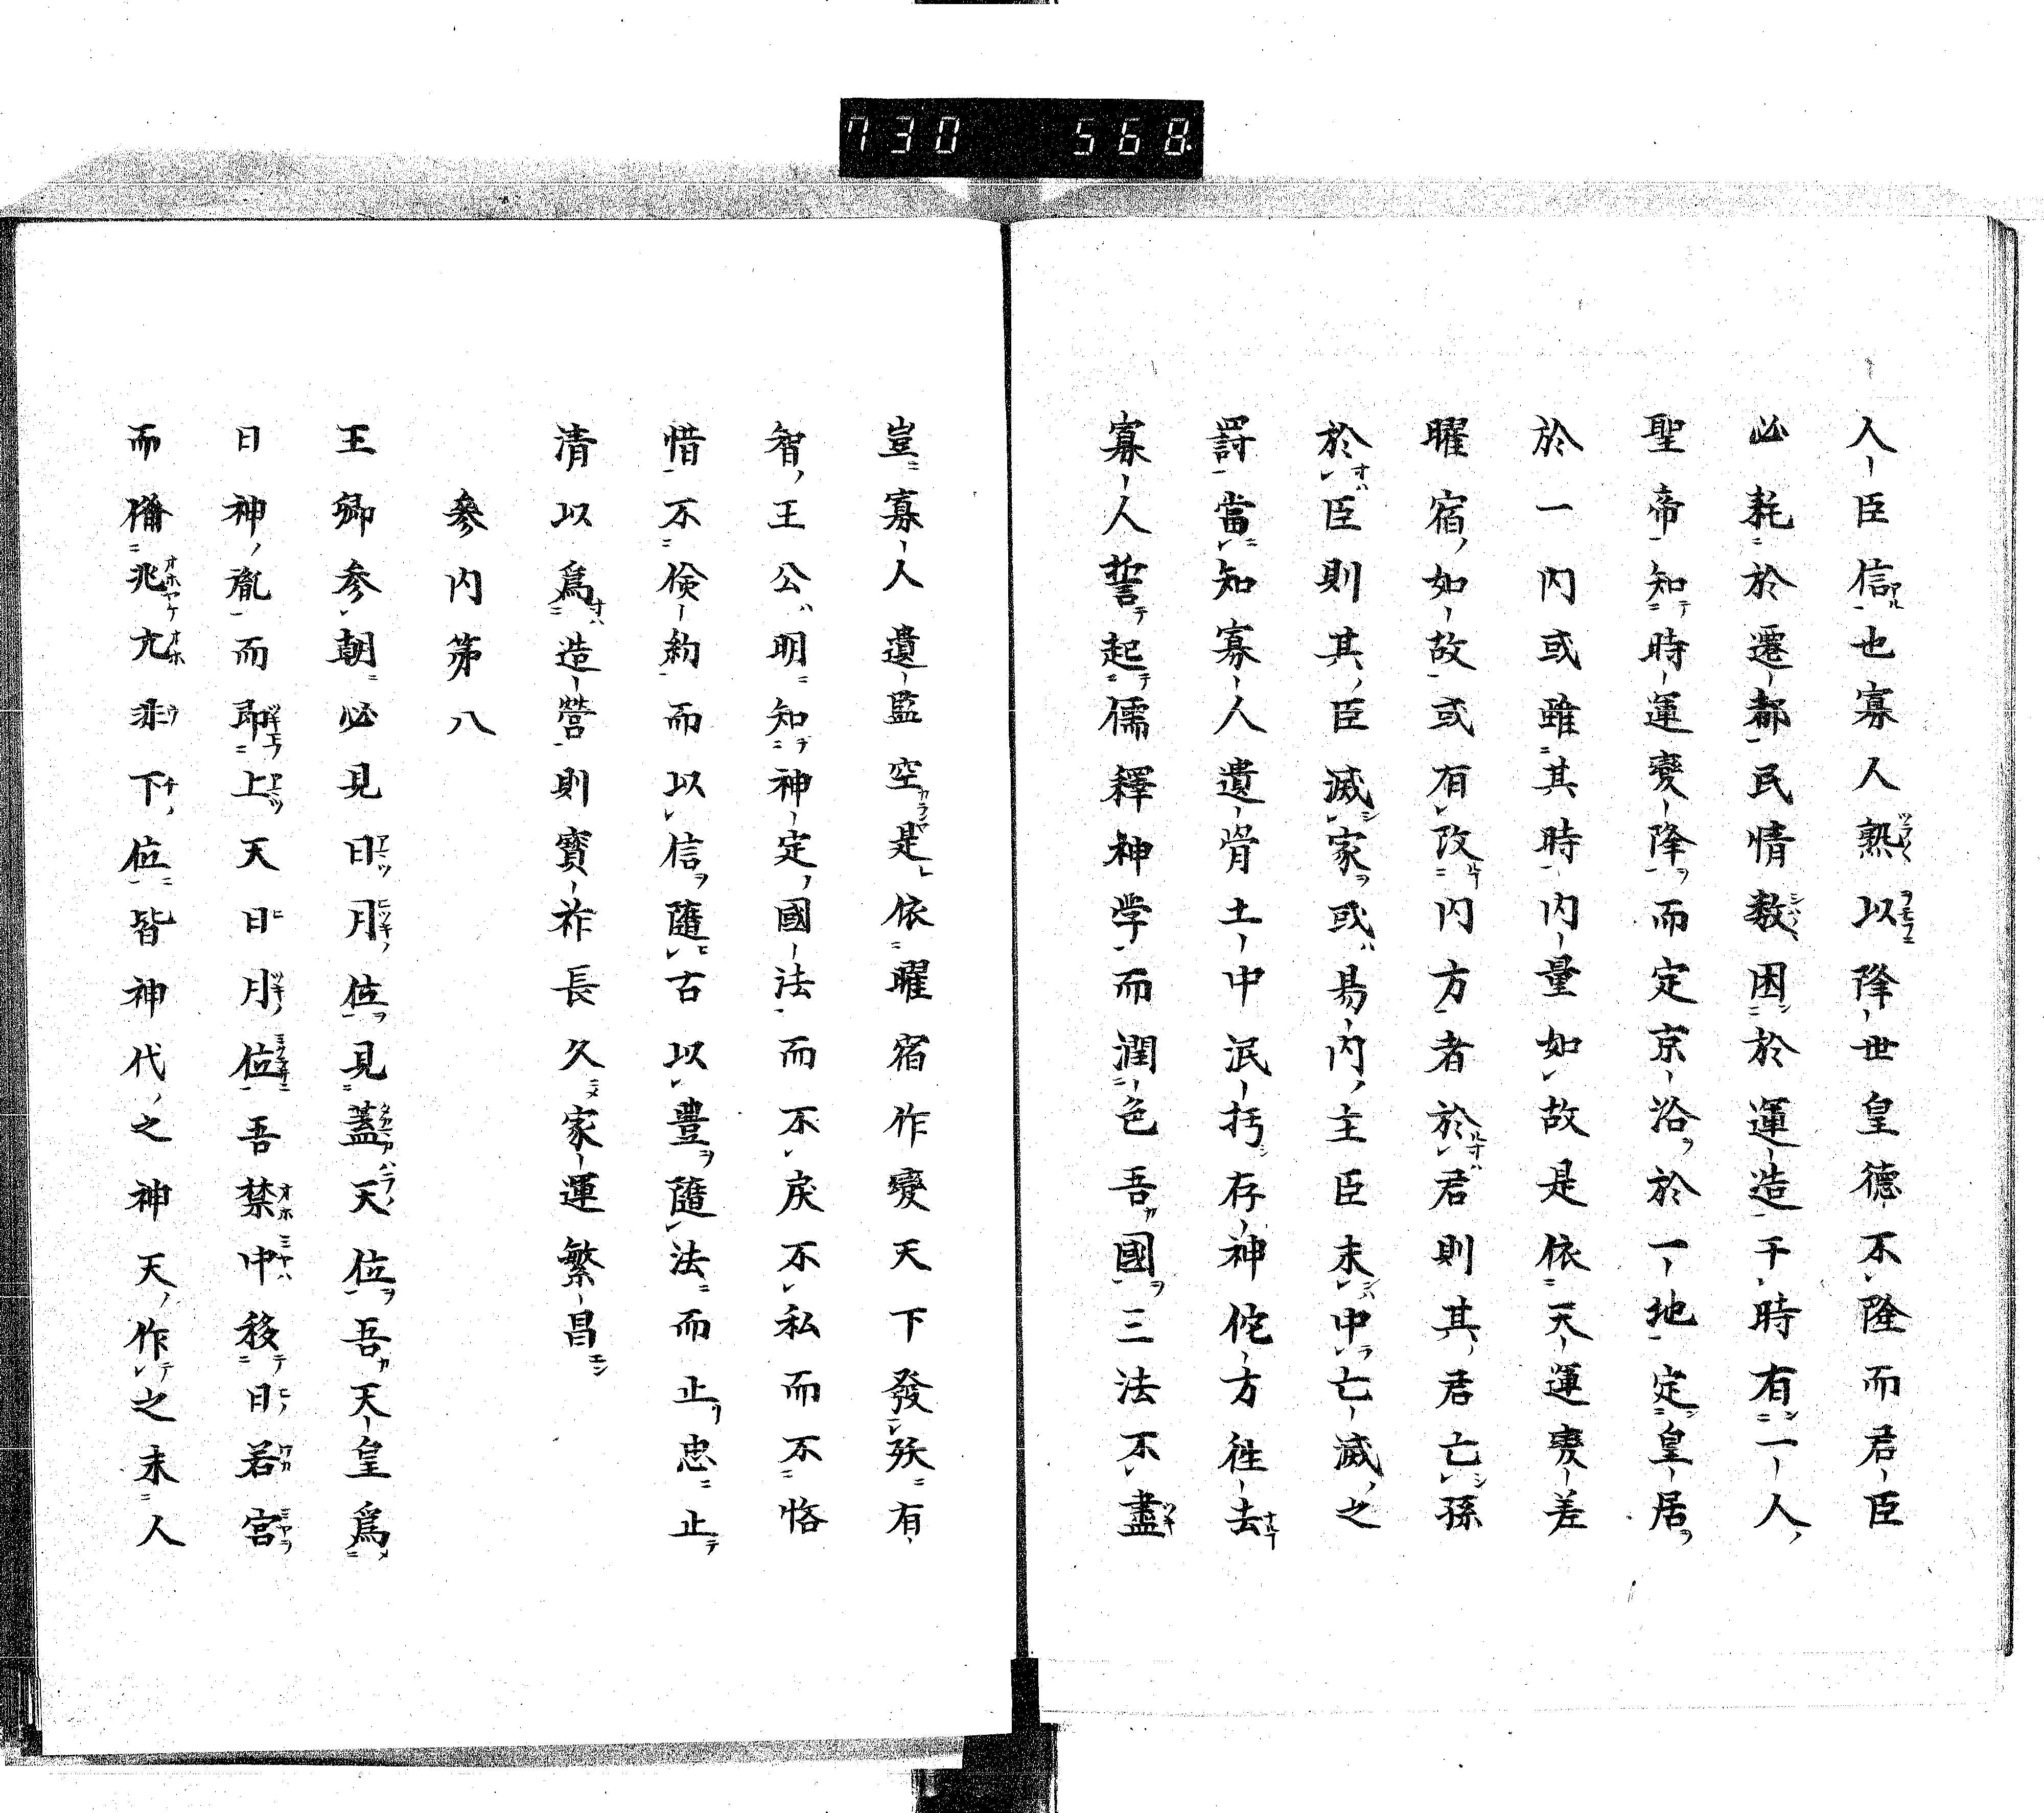 730 568
人臣信也寡人熟以降世皇德不隆而君臣
必耗於遷都民情数困於運造于時有一人
聖帝知時運變降而定京洛於一地定皇居
於一内或雖其時内量如故是依天運変差
曜宿如故或有改内方者於君則其君亡孫
於臣則其臣滅家或易内主臣末中亡滅之
罸當知寡人遺骨土中泯朽存神侘方徃去
寡人誓起儒釋神学而潤色吾國三法不盡
豈寡人遺監空是依曜宿作變天下發殀有
智王公明知神定國法而不戻不私而不悋
惜不儉約而以信隨古以豊隨法而止忠止
清以爲造營則寳祚長久家運繁昌
參内第八
王卿参朝必見日月位見蓋天位吾天皇爲
日神胤而即上天日月位吾禁中移日若宮
而兆亢非下位皆神代之神天作之末人